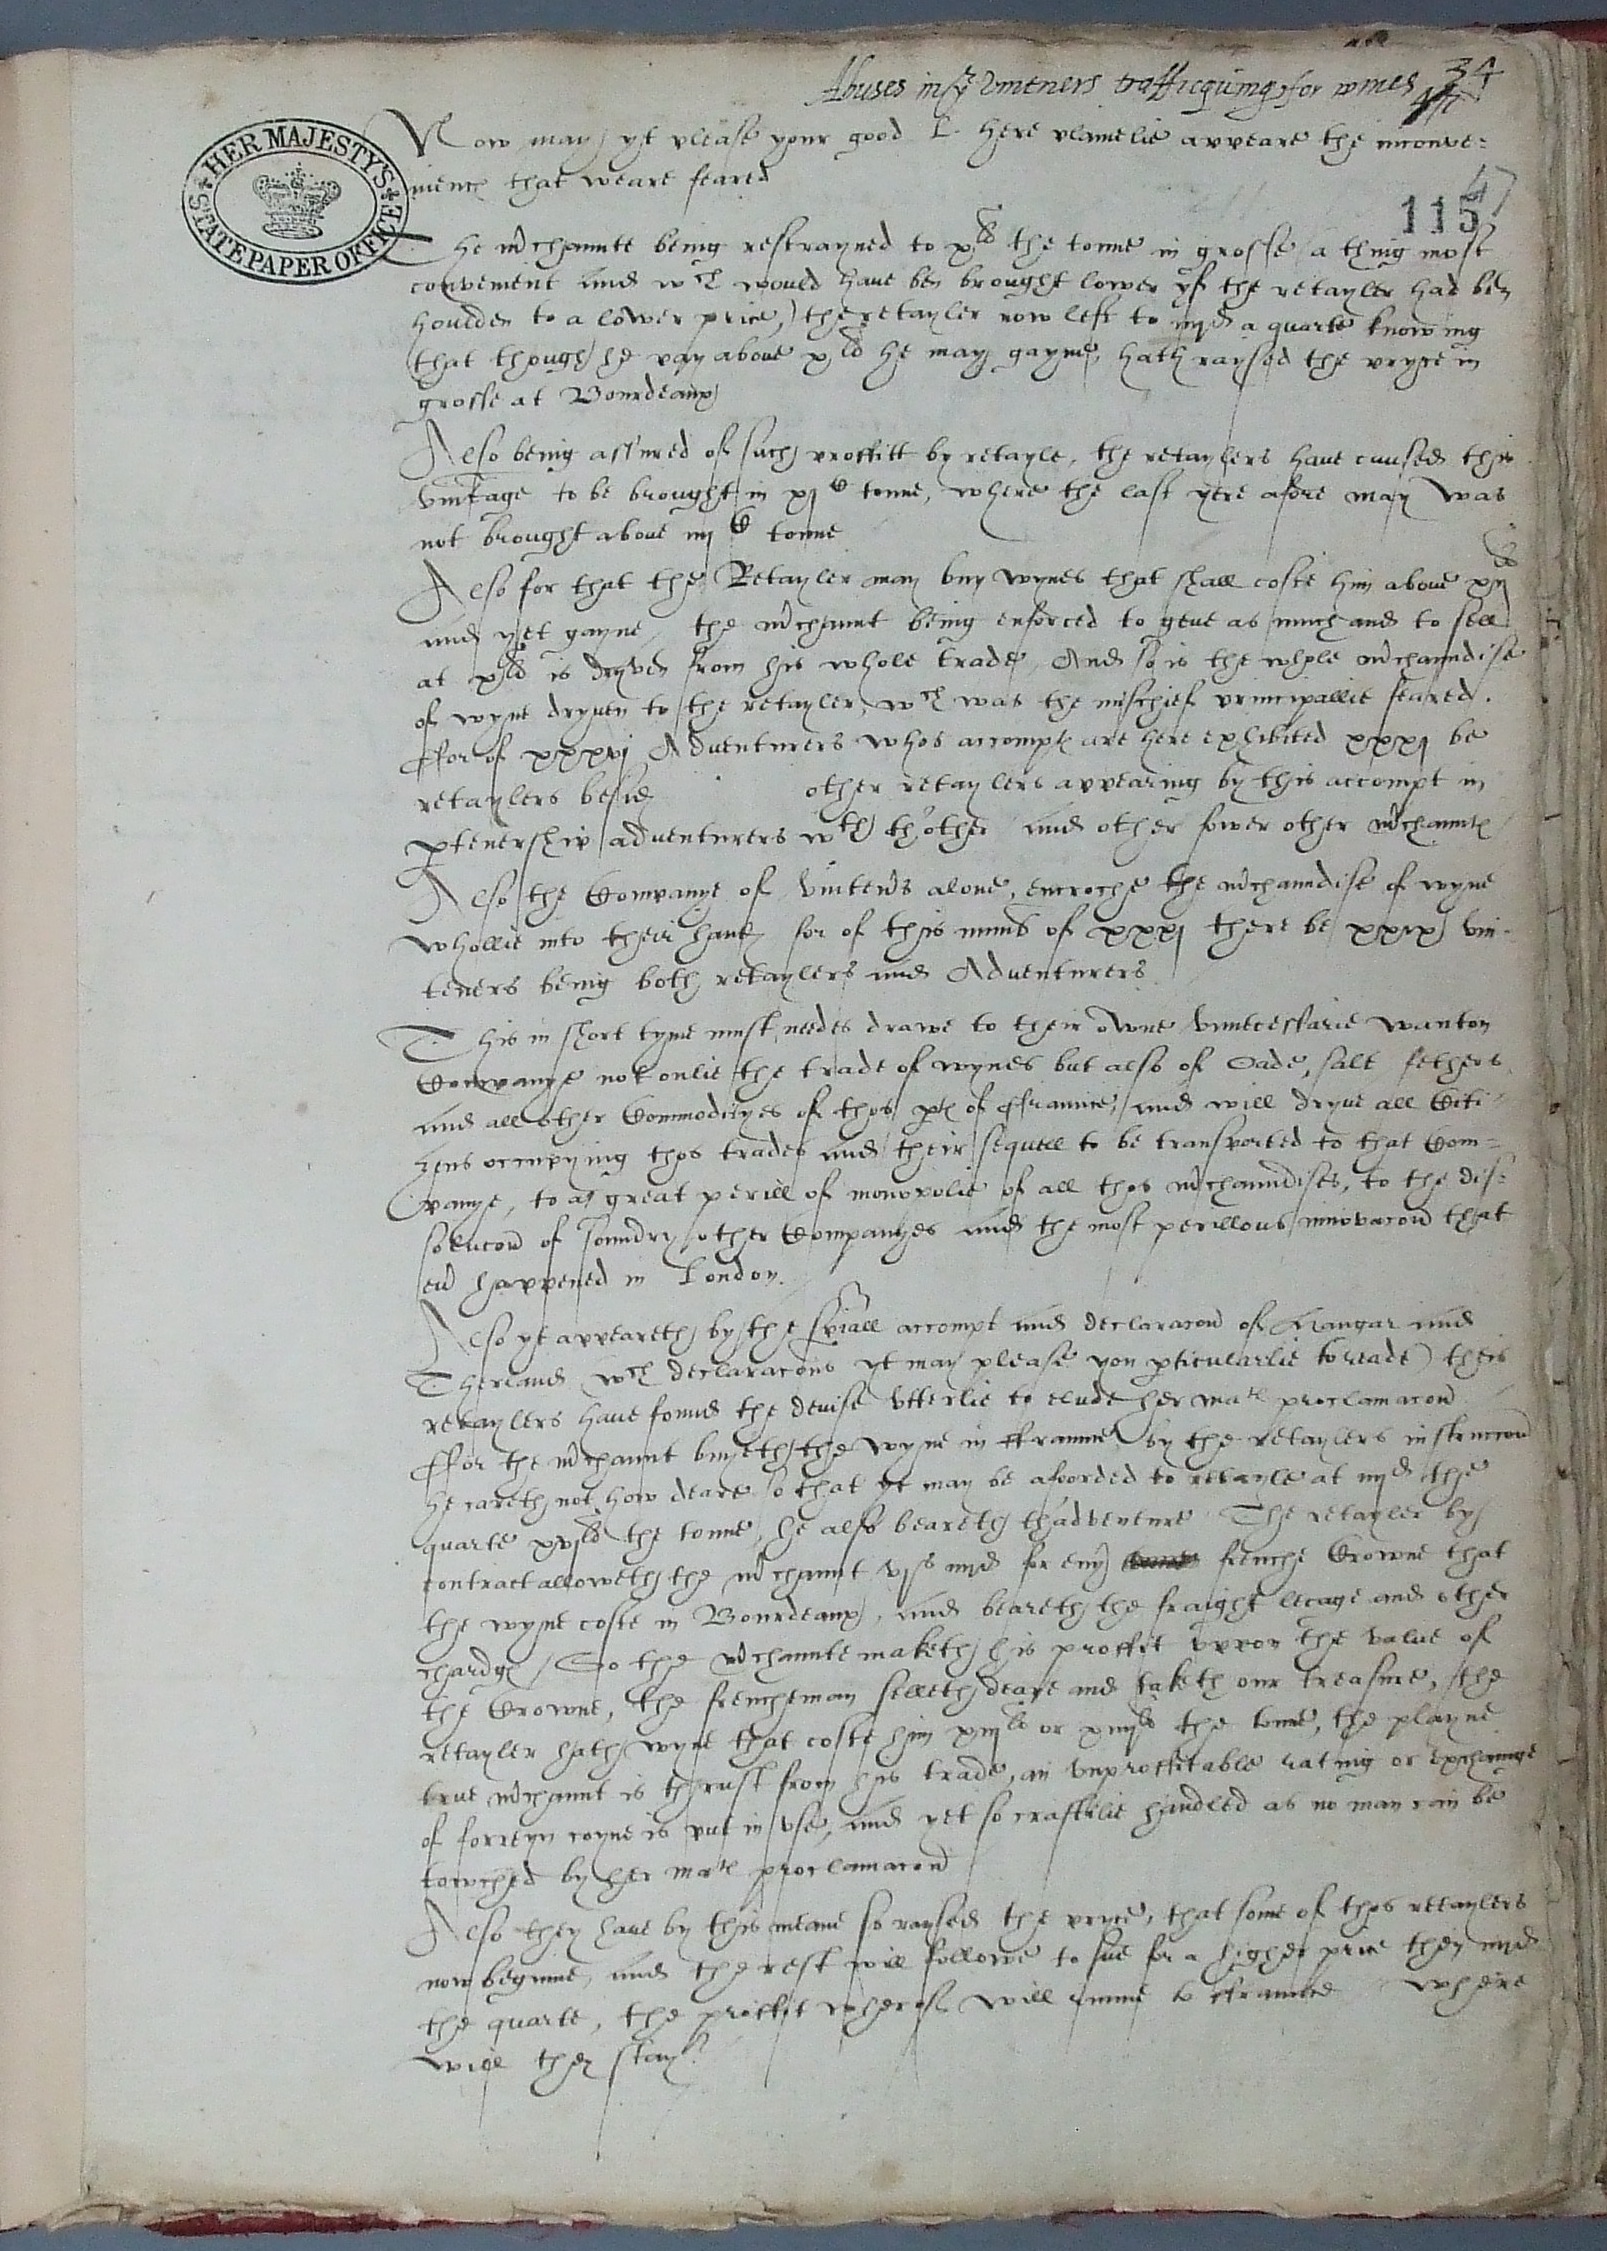 Abuses in ye Vinteners trafficquing for wines 34
HER MAJESTY'S STATE PAPER OFFICE
Now may yt please your good L. here plainelie appeare the inconve=
nienc that weare feared
115
The mrchaunte being restrayned to xli the tonne in grosse (a thing most
convenient and wch would have ben brought lower yf the retayler had ben
houlden to a lower price,) the retayler now left to iiijd a quarte knowing
that though he pay above xli he may gayne, hath raysed the pryce in
grosse at Bourdeaux
Also being assured of such proffitt by retayle, the retaylers have caused this
vintage to be brought in tonne, where the last yere afore may was
not brought above tonne
Also for that the Retayler may buy wynes that shall coste him above
and yet gayne, the mrchaunt being enforced to geve as much and to sell
at xli is dryven from his whole trade, And so is the whole mrchaundise
of wyne dryven to the retayler, wch was the mischief principallie feared.
ffor of xxxvj Adventurers whos accompts are here exhibited xxxj be
retaylers besids other retaylers appearing by this accompt in
ptenership adventurers wth thother and other fower other mrchaunts
Also the Companye of Vinteners alone, encroche the mrchaundise of wyne
whollie into their hands for of this numb of xxxj there be xxix vin-
teners being both retaylers and Adventurers
This in short tyme must needes drawe to their owne unnecessarie wanton
Companye not onlie the trade of wynes but also of Oade, salt fethers
and all other Commodityes of thos pts of ffraunce, and will dryve all Citi-
zens occupying thos trades and their sequell to be transported to that Com=
panye, to as great perill of monopolie of all thos mrchaundises, to the dis=
solucon of soundry other Companyes and the most perillous innovacon that
evr happened in London.
Also yt appeareth by the spiall accompt and declaracon of and
wch declaracons yt may please you pticularlie to reade) theis
retaylers have found the devise utterlie to elude her mats proclamacon
ffor the mrchaunt buyeth the wyne in ffraunce by the retaylers instruccon
he careth not how deare so that yt may be afoorded to retayle at iiijd the
quarte the tonne, he also beareth thadventure The retayler by
contract alloweth the mrchaunt vjs for evry frenche Crowne that
the wyne coste in Bourdeaux, and beareth the fraight lecage and other
chardgs / So the mrchaunte maketh his proffit uppon the value of
the Crowne, the frencheman selleth deare and taketh our treasure, the
retayler hath wyne that coste him xiijli or xiiijli the tonne, the playne
true mrchaunt is thrust from his trade, an unproffitable rating or exchaunge
of forreyn coyne is put in use, and yet so craftelie handled as no man can be
towched by her mats proclamacon
Also they have by this meane so raysed the pryce, that some of thos retaylers
now beginne, and the rest will followe to sue for a higher price then iiijd
the quarte, the proffit wherof will runne to ffraunce where
will they stay?